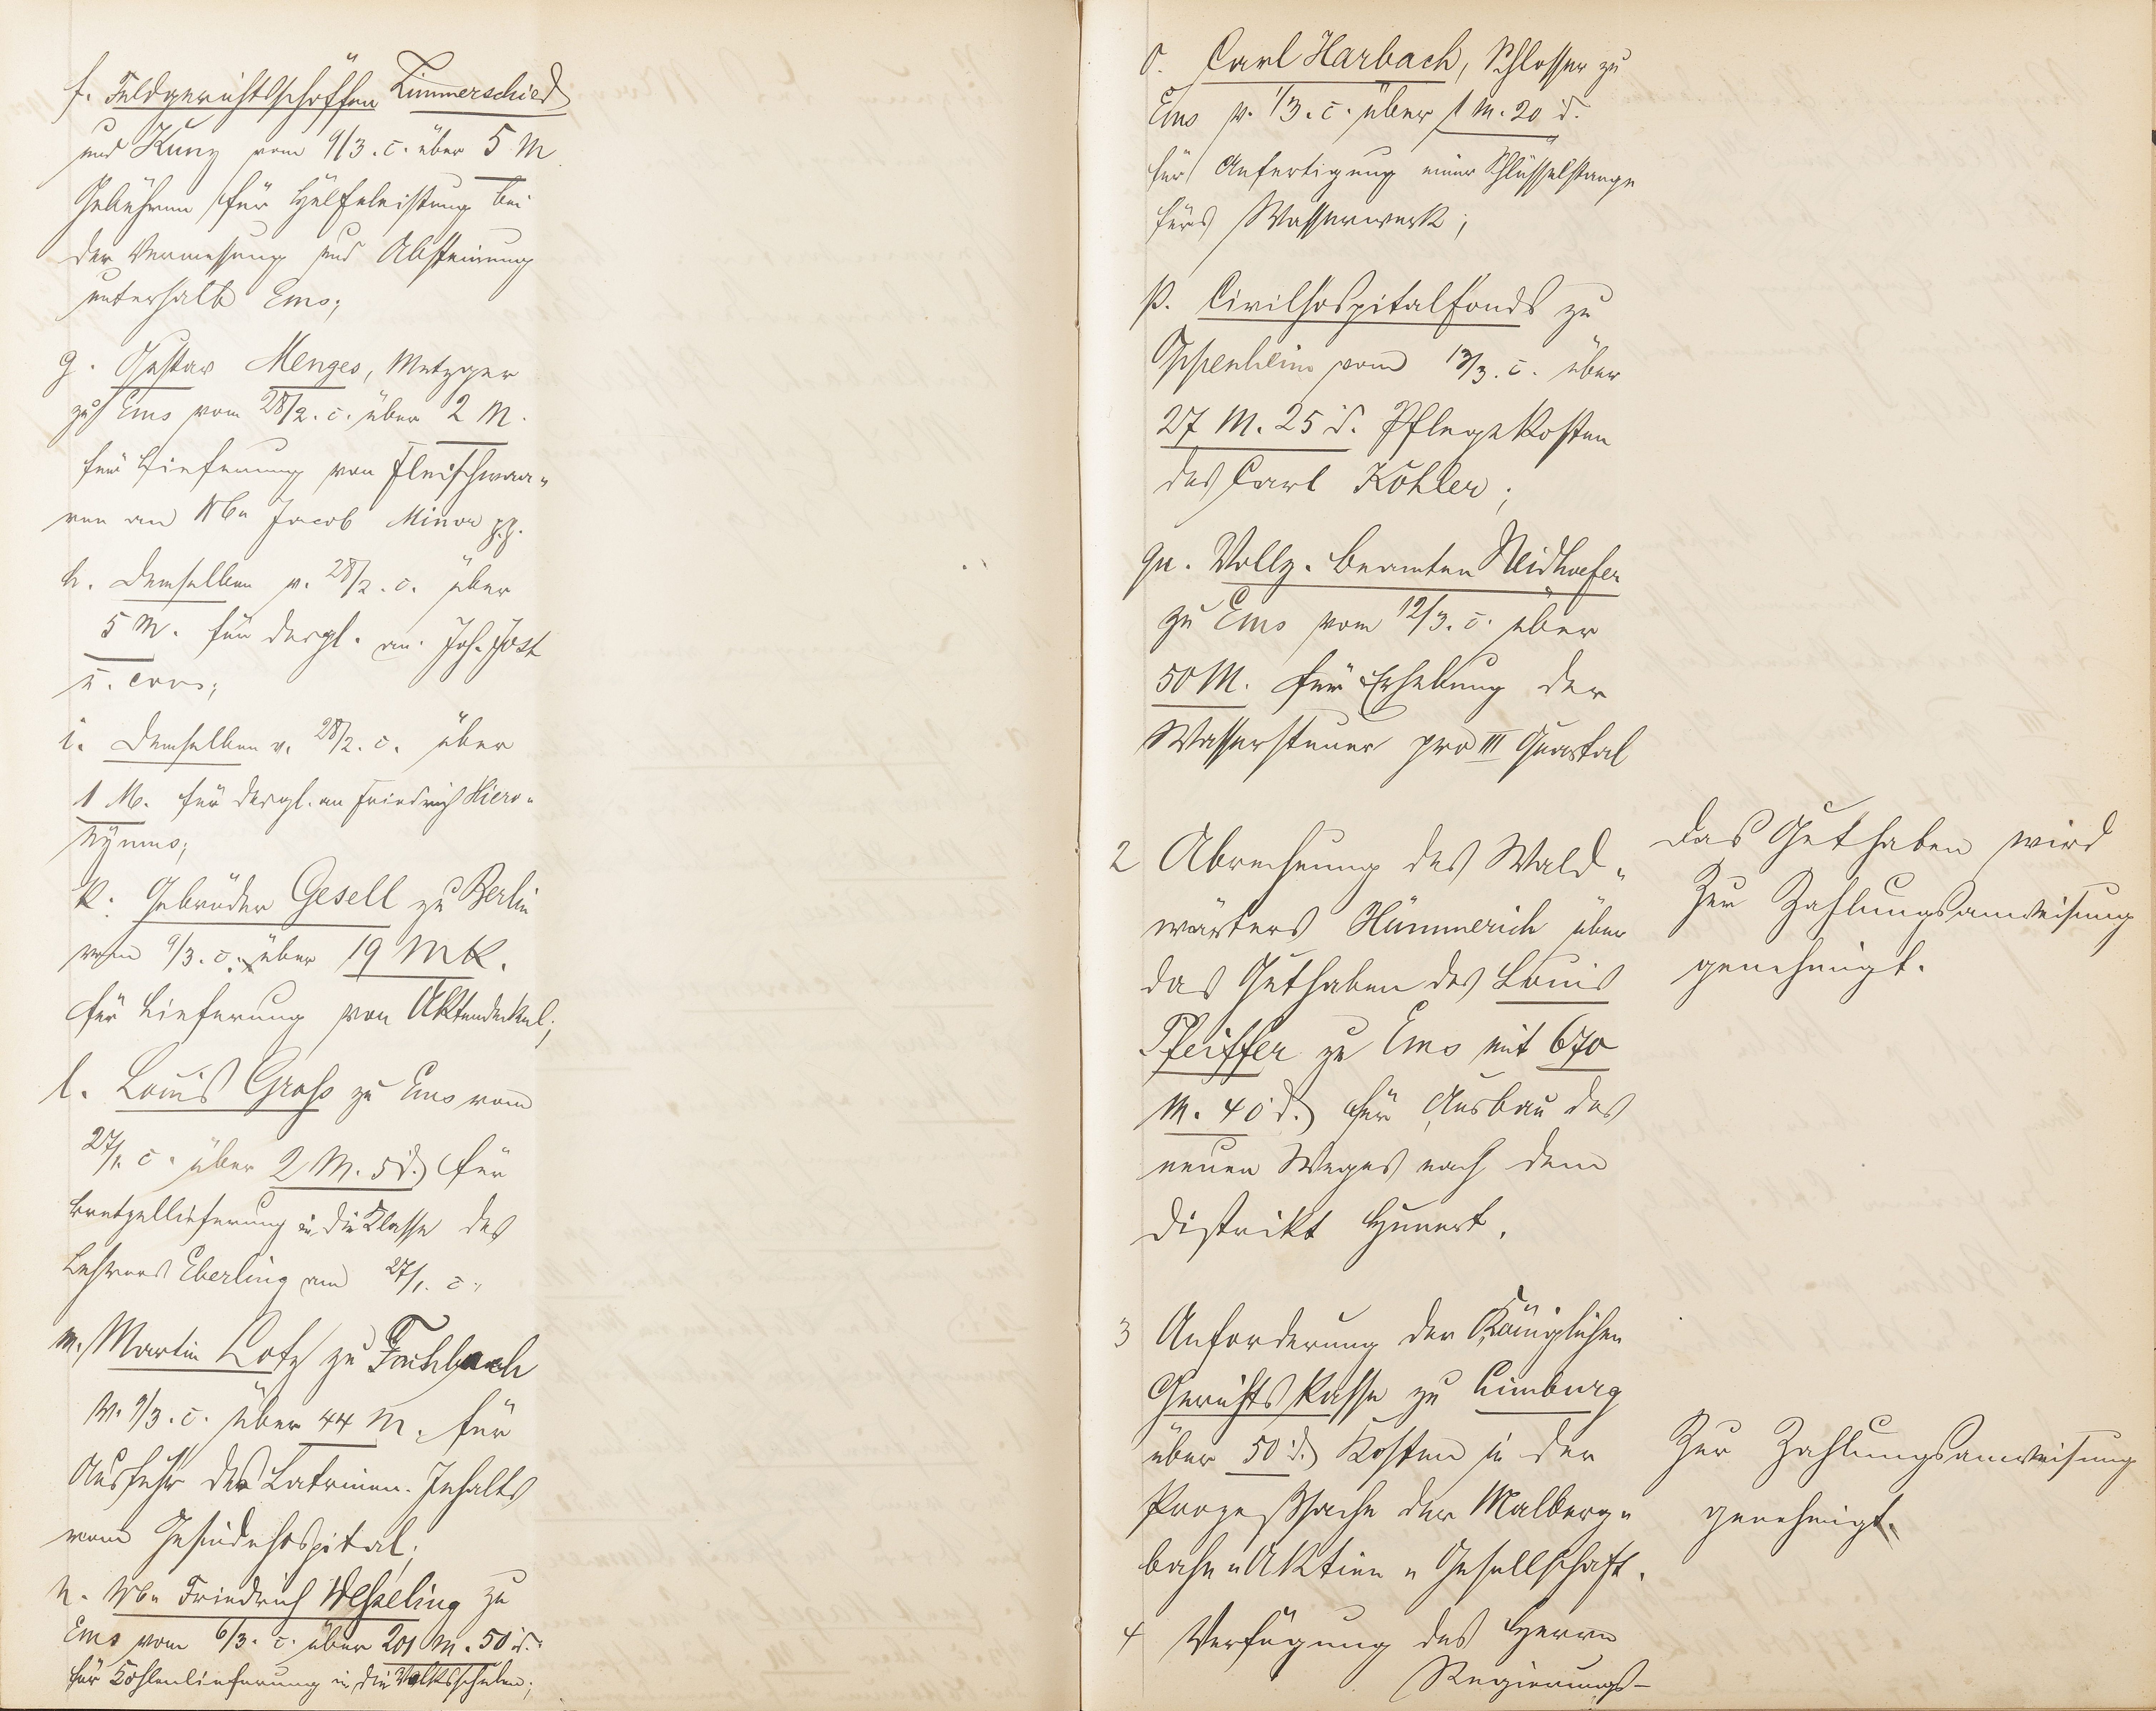 f. Feldgerichtsschöffen Limmerschied
und Kunz vom 9/3. c. über 5 M
Gebühren für Hülfeleistung bei
der Vermessung und Absteinung
unterhalb Ems;
g. Gustav Menges, Metzger
zu Ems vom 28/2. c. über 2 M.
für Lieferung von Fleischwaa-
ren an Wb. Jacob Minor pp.
h. Demselben v. 28/2. c. über
5 M. für dergl. an Joh. Jost
u. cons;
i. Demselben v. 28/2. c. über
1 M. für dergl. an Friedrich Hiero-
nÿmus;
k. Gebrüder Gesell zu Berlin
vom 9/3. c. über 19 Mk.
für Lieferung von Aktendeckel;
l. Louis Groß zu Ems vom
27/1. c. über 2 M. 5 d. für
Bretzellieferung in die Klasse des
Lehrers Eberling am 27/1. c.
m. Martin Lotz zu
v. 9/3. c. über 44 M. für
Ausfuhr des Latrinen-Inhalts
vom Gesindehospital;
n. Wb. Friedrich Weßeling zu
Ems vom 6/3. c. über 201 M. 50 d.
für Kohlenlieferung in die Volksschulen;
o. Carl Harbach, Schlosser zu
Ems v. 1/3. c. über 1 M. 20 d.
für Anfertigung einer Schlüsselstange
fürs Wasserwerk;
p. Civilhospitalfonds zu
Oppenheim vom 13/3. c. über
27 M. 25 d. Pflegekosten
des Carl Köhler;
qu. Vollz. Beamten Neidhoefer
zu Ems vom 12/3. c. über
50 M. für Erhebung der
Wassersteuer pro III Quartal
2 Abrechnung des Wald-
wärters Hümmerich über
das Guthaben des Louis
Pfeiffer zu Ems mit 670
M. 40 d. für Ausbau des
neuen Weges nach dem
Distrikt Hunert.
Das Guthaben wird
zur Zahlungsanweisung
genehmigt.
3 Anforderung der Königlichen
Gerichtskasse zu Limburg
über 50 d. Kosten in der
Prozeßsache der Malberg-
bahn-Aktien-Gesellschaft.
Zur Zahlungsanweisung
genehmigt.
4 Verfügung des Herrn
Regierungs-